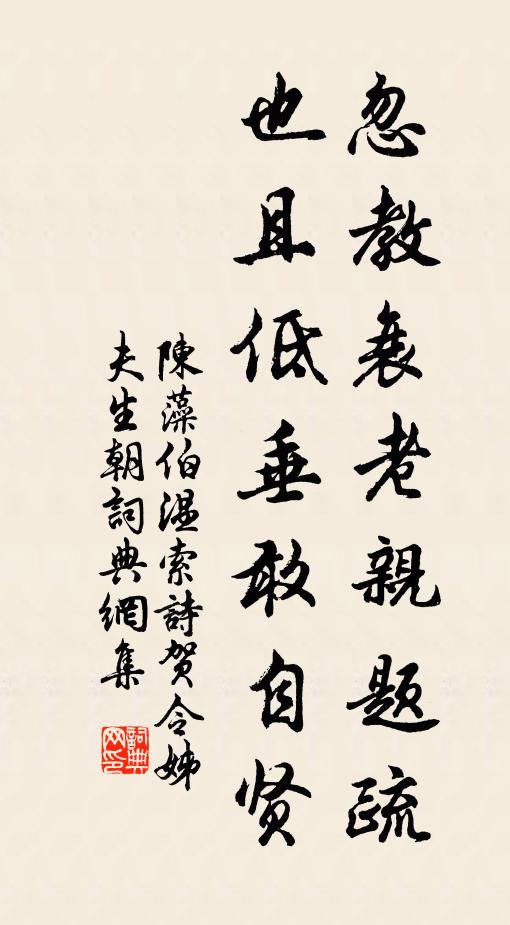 忽教衰老親题疏
也且低垂敢自贤
陳藻伯温索詩贺令姊
夫生朝詞典網集
詞典网印